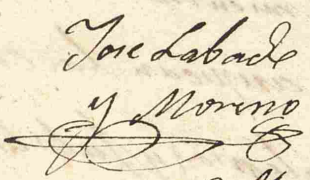 Jose Labade
y Moreno